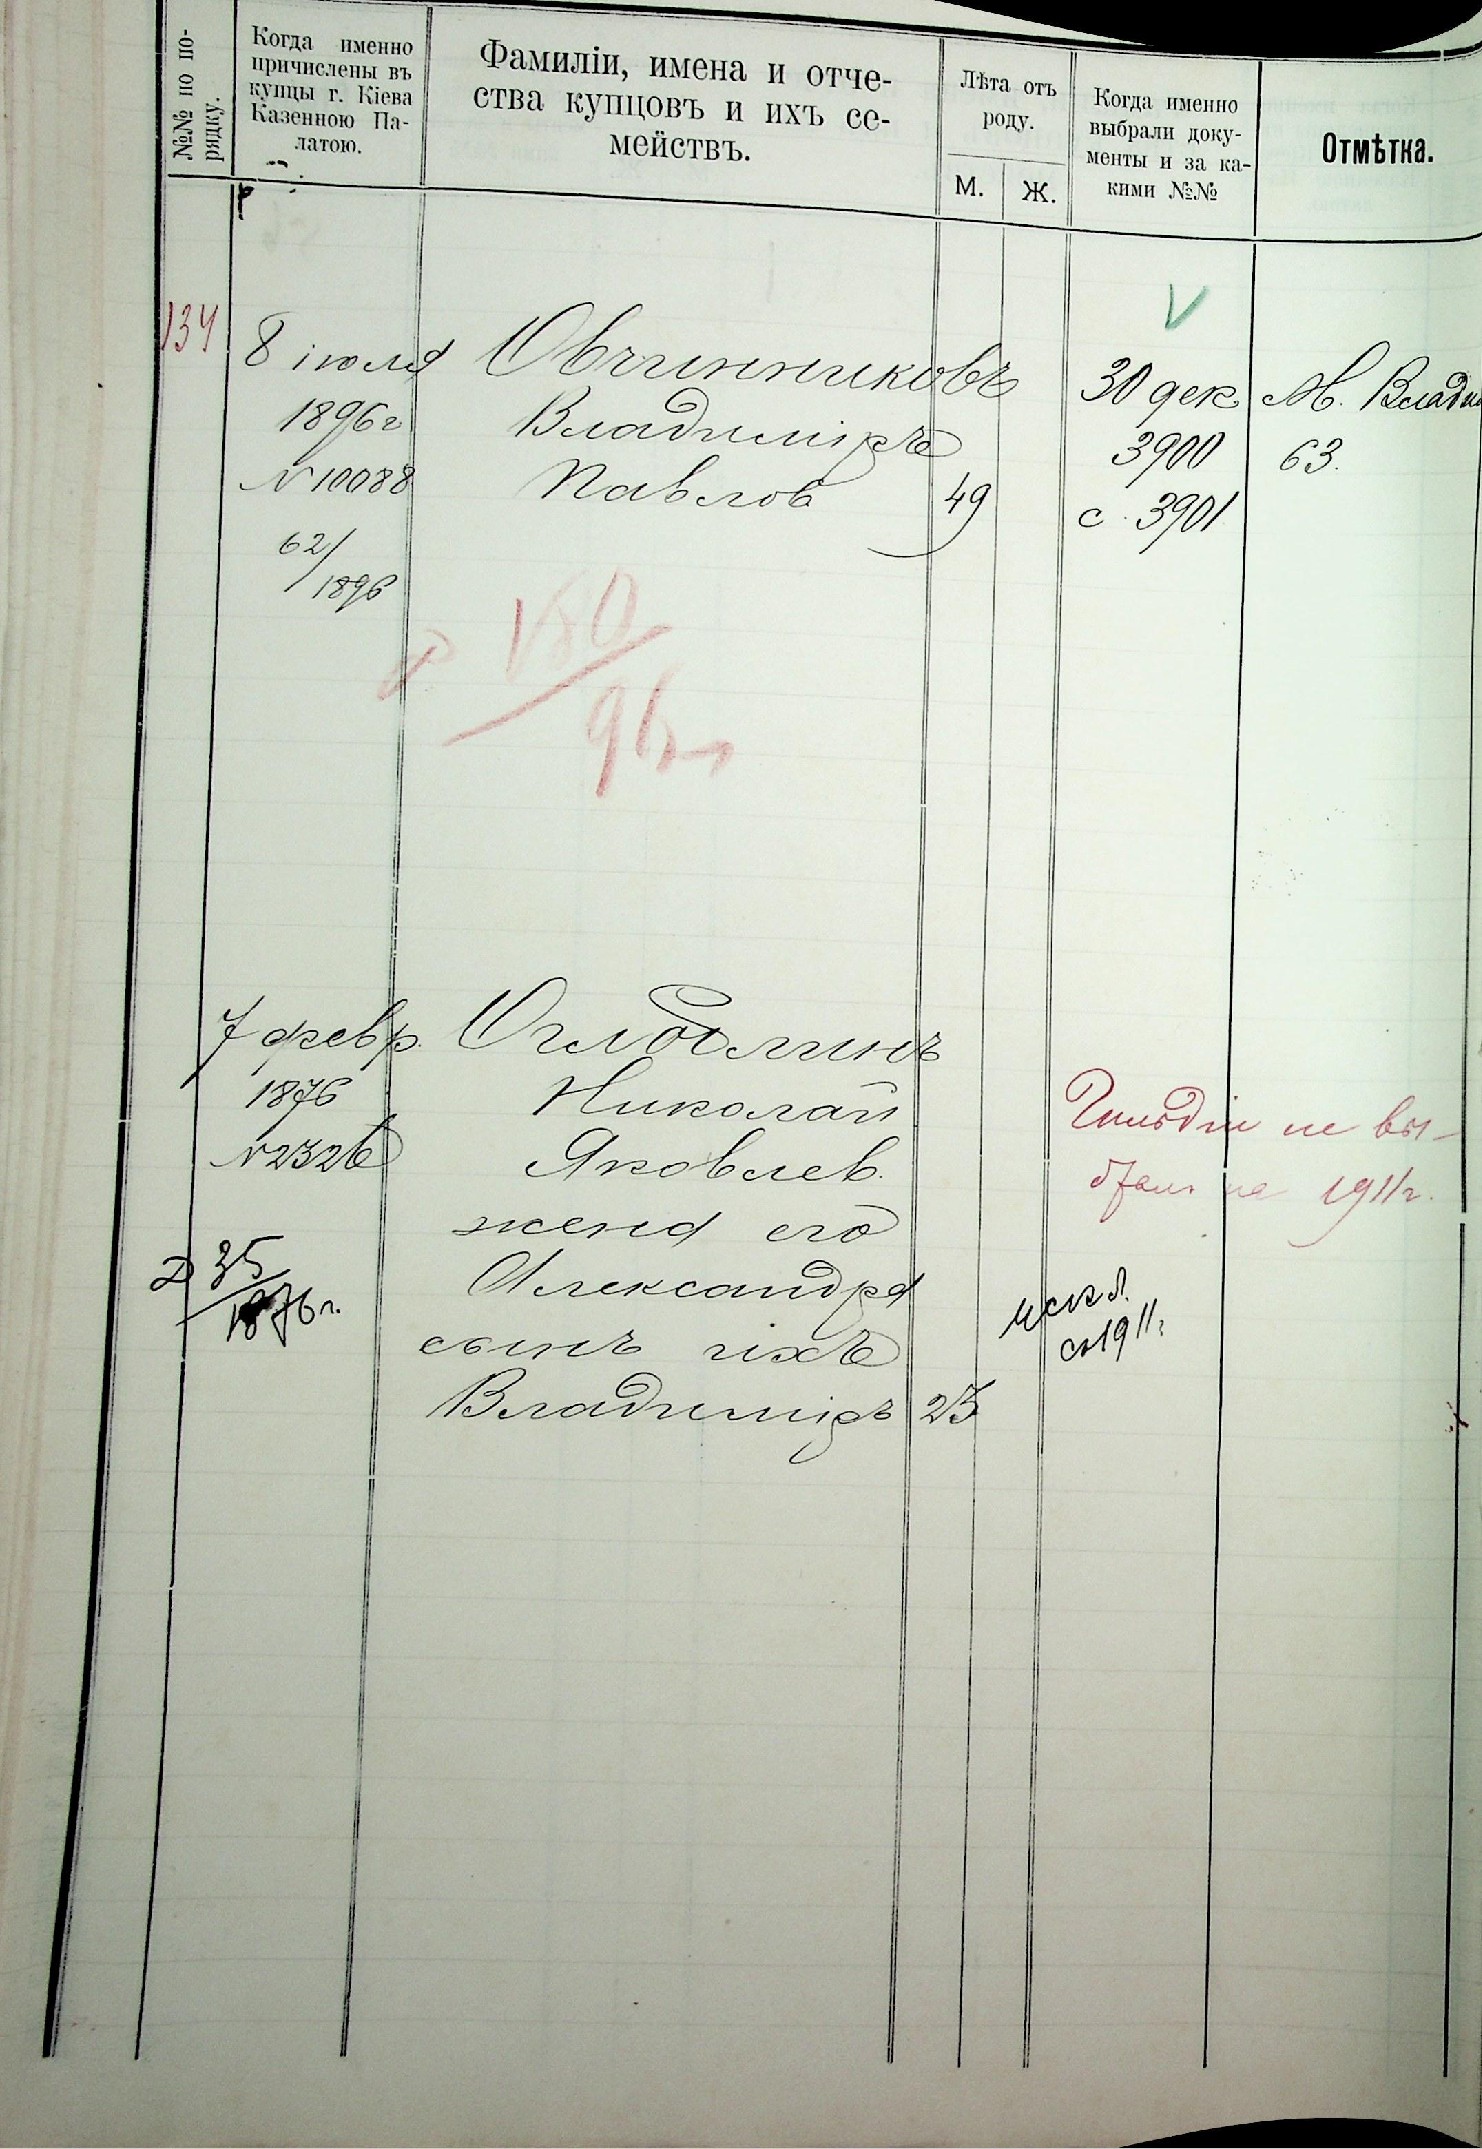 №№ по по-
рядку.
Когда именно
причислены въ
купцы г. Кіева
Казенною Па-
латою.
Фамиліи, имена и отче-
ства купцовъ и ихъ се-
мействъ.
Лѣта отъ
роду.
М.
Ж.
Когда именно
выбрали доку-
менты и за ка-
кими №№
Отмѣтка.
134
8 іюля
1896г
№ 10088
62/
1896
Овчинниковъ
Владиміръ
Павлов
49
30 дек
3900
с. 3901
М. Влади
63.
180
96 г
7 февр.
1876
№ 2326
Д 35
1876 г.
Оглоблинъ
Николай
Яковлев.
жена его
Александра
сынъ ихъ
Владиміръ
23
Гильдіи не вы-
брали на 1911 г.
искл.
съ 1911 г.